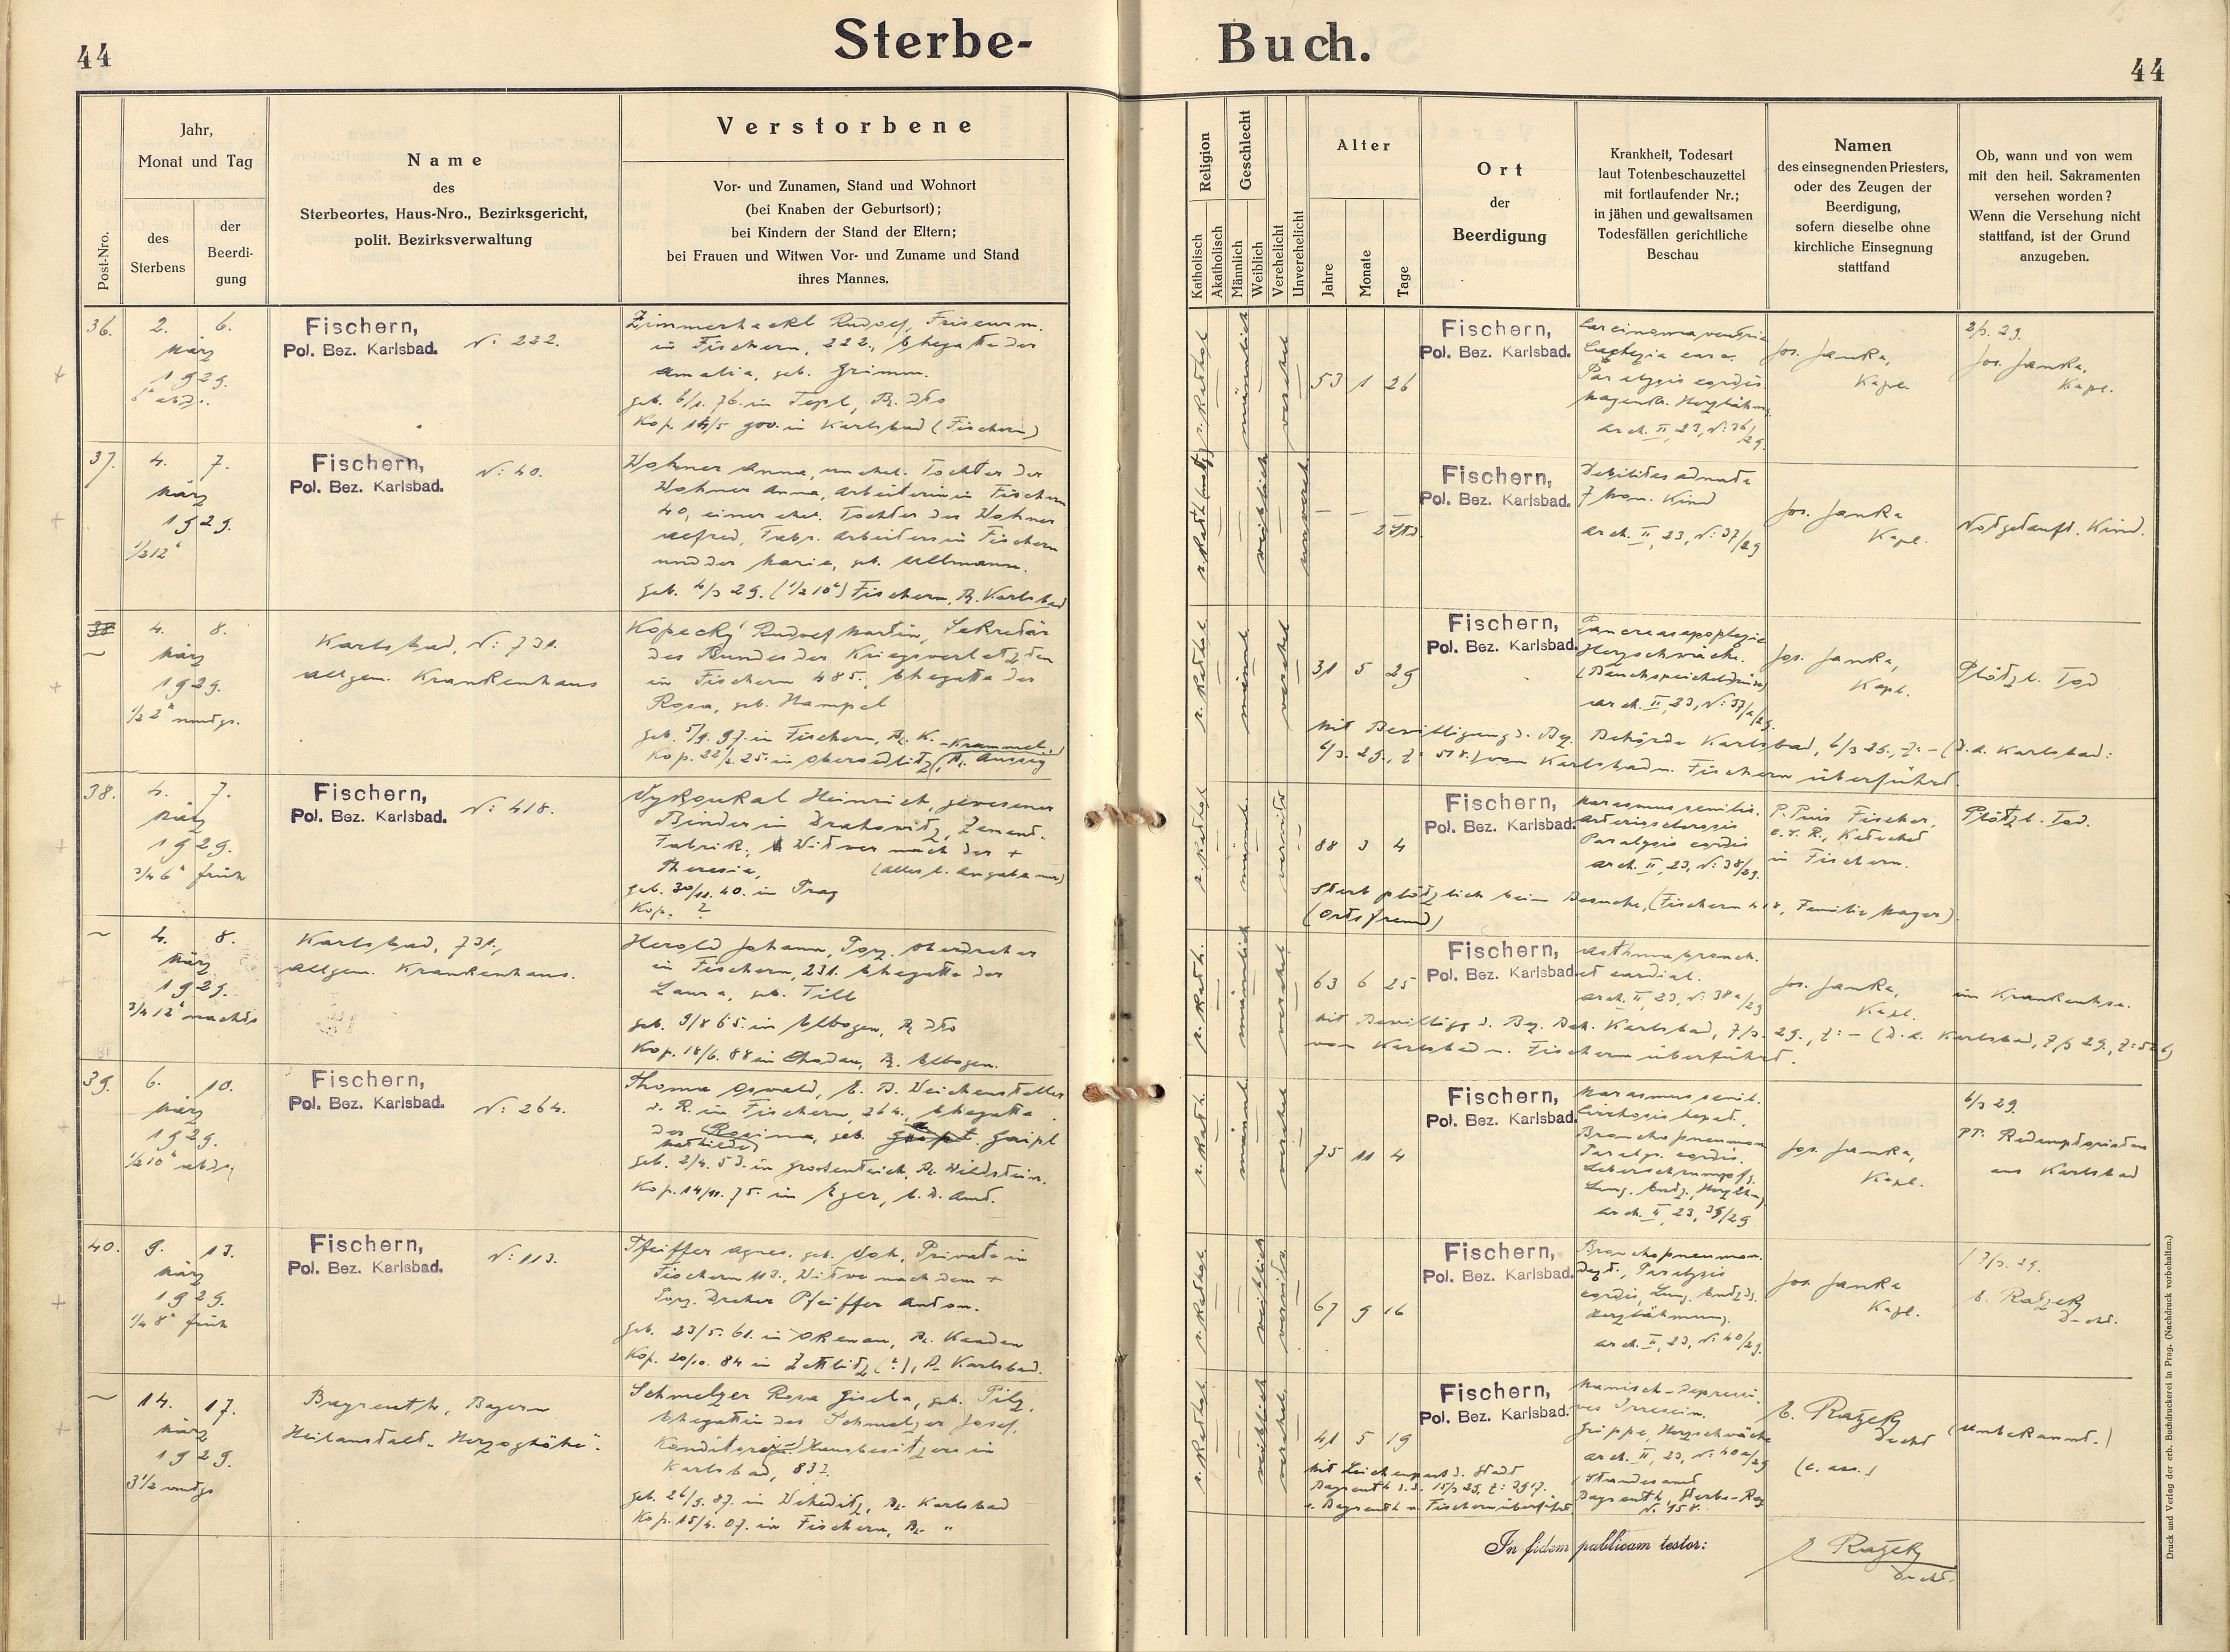 44
Sterbe-
Buch.
44
Post-Nro.
Jahr,
Monat und Tag
des
Sterbens
der
Beerdi-
gung
Name
des
Sterbeortes, Haus-Nro., Bezirksgericht,
polit. Bezirksverwaltung
Verstorbene
Vor- und Zunamen, Stand und Wohnort
(bei Knaben der Geburtsort);
bei Kindern der Stand der Eltern;
bei Frauen und Witwen Vor- und Zuname und Stand
ihres Mannes.
Religion
Katholisch
Akatholisch
Geschlecht
Männlich
Weiblich
Verehelicht
Unverehelicht
Alter
Jahre
Monate
Tage
Ort
der
Beerdigung
Krankheit, Todesart
laut Totenbeschauzettel
mit fortlaufender Nr.;
in jähen und gewaltsamen
Todesfällen gerichtliche
Beschau
Namen
des einsegnenden Priesters,
oder des Zeugen der
Beerdigung,
sofern dieselbe ohne
kirchliche Einsegnung
stattfand
Ob, wann und von wem
mit den heil. Sakramenten
versehen worden?
Wenn die Versehung nicht
stattfand, ist der Grund
anzugeben.
36.
2. 6.
März
1929.
Fischern,
Pol. Bez. Karlsbad.
N: 222.
Zimmerhackl Rudolf, Friseurm.
in Fischern, 222., Ehegatte der
Amalia, geb. Grimm.
geb. 6/1. 76. in Tepl, Bz. dto
Kop. 14/5 900. in Karlsbad (Fischern)
r. kathol
männlich
verehel
53 1 26
Fischern,
Pol. Bez. Karlsbad.
Carcinoma ventric
Paralysis cordis
arch. II, 23, N: 36/29.
Jos. Janka,
Kapl.
2/3. 29.
Jos. Janka,
Kapl.
37.
4. 7.
März
1929.
1/2 12 h
Fischern,
Pol. Bez. Karlsbad.
N: 40.
Wohner Anna, unehel. Tochter der
Wohner Anna, Arbeiterin in Fischern
40, einer ehel. Tochter des Wohner
Alfred, Fabr. Arbeiters in Fischern
und der Maria, geb. Ullmann.
geb. 4/3 29. (1/2 10 h) Fischern, Bz. Karlsbad
weiblich
unvereh.
— —
2 Std.
Fischern,
Pol. Bez. Karlsbad.
Debilitas adnata
7 mon. Kind
arch. II, 23, N: 37/29
Jos. Janka
Kapl.
Notgetauft. Kind.
38
~
4. 8.
März
1929.
1/2 2 h nmtgs.
Karlsbad, N: 731.
Allgem. Krankenhaus
Kopecký Rudolf Martin, Sekretär
des Bundes der Kriegsverletzten
in Fischern 485., Ehegatte der
Rosa, geb. Hampel
geb. 5/9. 97. in Fischern, Bz. K. Krammel,
Kop. 22/2. 25. in Obersedlitz, (Bz. Aussig
r. kathol
männl
verehel
31 5 29
Fischern,
Pol. Bez. Karlsbad.
Pancreasapoplexie
Herzschwäche.
(Bauchspeicheldrüse)
arch. II, 23, N: 37/a/29.
Jos. Janka,
Kapl.
Plötzl. Tod
mit Bewilligung d. Bez. Behörde Karlsbad, 6/3 29., Z: – (D.A. Karlsbad:
6/3. 29., Z: 518.) von Karlsbad n. Fischern überführt.
38.
4. 7.
März
1929.
3/4 6 h früh
Fischern,
Pol. Bez. Karlsbad.
N: 418.
Vyskoukal Heinrich, gewesener
Binder in Drahowitz, Zement-
Fabrik, Witwer nach der +
Theresia,
geb. 30/11. 40. in Prag
Kop. ?
r. kathol
männl.
verwitw
88 3 4
Fischern,
Pol. Bez. Karlsbad.
Marasmus senilis,
Arteriosclerosis
Paralysis cordis
arch. II, 23, N: 38/29.
P. Pius Fischer,
Katechet
in Fischern.
Plötzl. Tod.
Starb plötzlich beim Besuche, (Fischern 418, Familie Mayer).
(Ortsfremd)
~
4. 8.
März
1929.
3/4 12 h nachts
Karlsbad, 731.,
Allgem. Krankenhaus.
Herold Johann, Porz. Oberdreher
in Fischern, 231. Ehegatte der
Laura, geb. Till
geb. 9/8 65. in Elbogen, Bz. dto
Kop. 18/6. 88 in Chodau, Bz. Elbogen.
r. kath.
männlich
verehel
63 6 25
Fischern,
Pol. Bez. Karlsbad.
Asthma bronch.
et cardial.
arch. II, 23, N: 38a/29
Jos. Janka,
Kapl.
im Krankenhse.
mit Bewilligg d. Bez. Beh. Karlsbad, 7/3. 29., Z: – (D.A. Karlsbad, 7/3 29., Z: 526)
von Karlsbad n. Fischern überführt.
39.
6. 10.
März
1929.
1/2 10 h abds.
Fischern,
Pol. Bez. Karlsbad.
N: 264.
Thoma Oswald, E. B. Weichensteller
i. R. in Fischern, 264., Ehegatte
der Regina, geb. Gaipl
geb. 2/4. 53. in Grossenteich, Bz. Wildstein.
Kop. 14/11. 75. in Eger,
r. kath.
männl
verehel
75 11 4
Fischern,
Pol. Bez. Karlsbad.
Marasmus senil.
Cirrhosis hepat.
Bronchopneumon
Paralys. cordis.
Leberschrumpfg.
arch. II, 23, 39/29
Jos. Janka,
Kapl.
6/3 29.
PP. Redemptoristen
aus Karlsbad
40.
9. 13.
März
1929.
1/4 8 h früh
Fischern,
Pol. Bez. Karlsbad.
N: 113.
Pfeiffer Agnes, geb. Poh, Private in
Fischern 113., Witwe nach dem +
Porz. Dreher Pfeiffer Anton.
geb. 23/5. 61. in Okenau, Bz. Kaaden
Kop. 20/10. 84 in Zettlitz (?), Bz. Karlsbad.
r. kathol
weiblich
verwitw
67 9 16
Fischern,
Pol. Bez. Karlsbad.
Bronchopneumon.
Paralysis
cordis, Lung. Entzd.
Herzlähmung.
arch. II, 23, N: 40/29.
Jos. Janka
Kapl.
7/3. 29.
E. Ratzek
Decht.
~
14. 17.
März
1929.
3 1/2 nmtgs
Bayreuth, Bayern
Heilanstalt „Herzoghöhe".
Schmelzer Rosa Gisela, geb. Pilz,
Ehegattin des Schmelzer Josef,
Konditors, Hausbesitzers in
Karlsbad, 837.
geb. 26/9. 87. in Weheditz, Bz. Karlsbad
Kop. 15/4. 07. in Fischern, Bz. "
r. kathol
weiblich
verehel
41 5 19
Fischern,
Pol. Bez. Karlsbad.
Manisch-Depressi-
ves Irresein.
Grippe, Herzschwäche
arch. II, 23, N: 40a/29
Standesamt
Bayreuth, Sterbe-Reg
N: 158.
E. Ratzek
Decht
(c. ass.)
(Unbekannt.)
mit Leichenpass d. Stadt
Bayreuth
v. Bayreuth n. Fischern überführt.
In fidem publicam testor:
E Ratzek
Decht.
Druck und Verlag der erb. Buchdruckerei in Prag. (Nachdruck vorbehalten.)